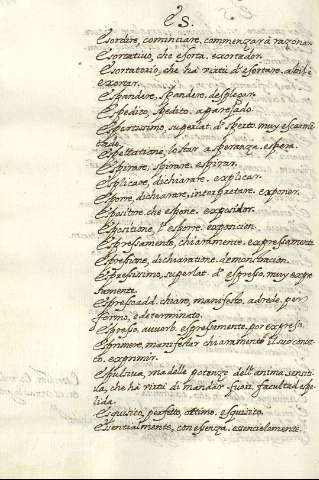 ES.
Esordire, cominciare. commenzar à razonar.
Esortativo, che esorta. exortador.
Esortatorio, che hà virtù d'esortare. abil à
exortar.
Espandere, spandere. desplegar.
Espedito, spedito. aparejado.
Espertissimo, superlat. d'esperto. muy escarmẽ
tado.
Espettatione, lo star a speranza. espera.
Espirare, spirare. espirar.
Esplicare, dichiarare. explicar.
Esporre, dichiarare, interpretare. exponer.
Espositore, che espone. exposidor.
Espositione, l'esporre. exposicion.
Espressamente, chiaramente. expressamente
Espressione, dichiaratione. demonstracion.
Espressissimo, superlat. d'espresso. muy expre
samente.
Espresso, add. chiaro, manifesto, adrede, per
fermo, e determinato.
Espresso, avverb. espressamente. por expresso.
Esprimere, manifestar chiaramente il suo concet
to. exprimir.
Espulsiva, una delle potenze dell'anima sensiti
va, che hà virtù di mandar fuori. facultad espe
lida.
Esquisito, perfetto, ottimo. esquisito.
Essentialmente, con essenza. essencialmente.